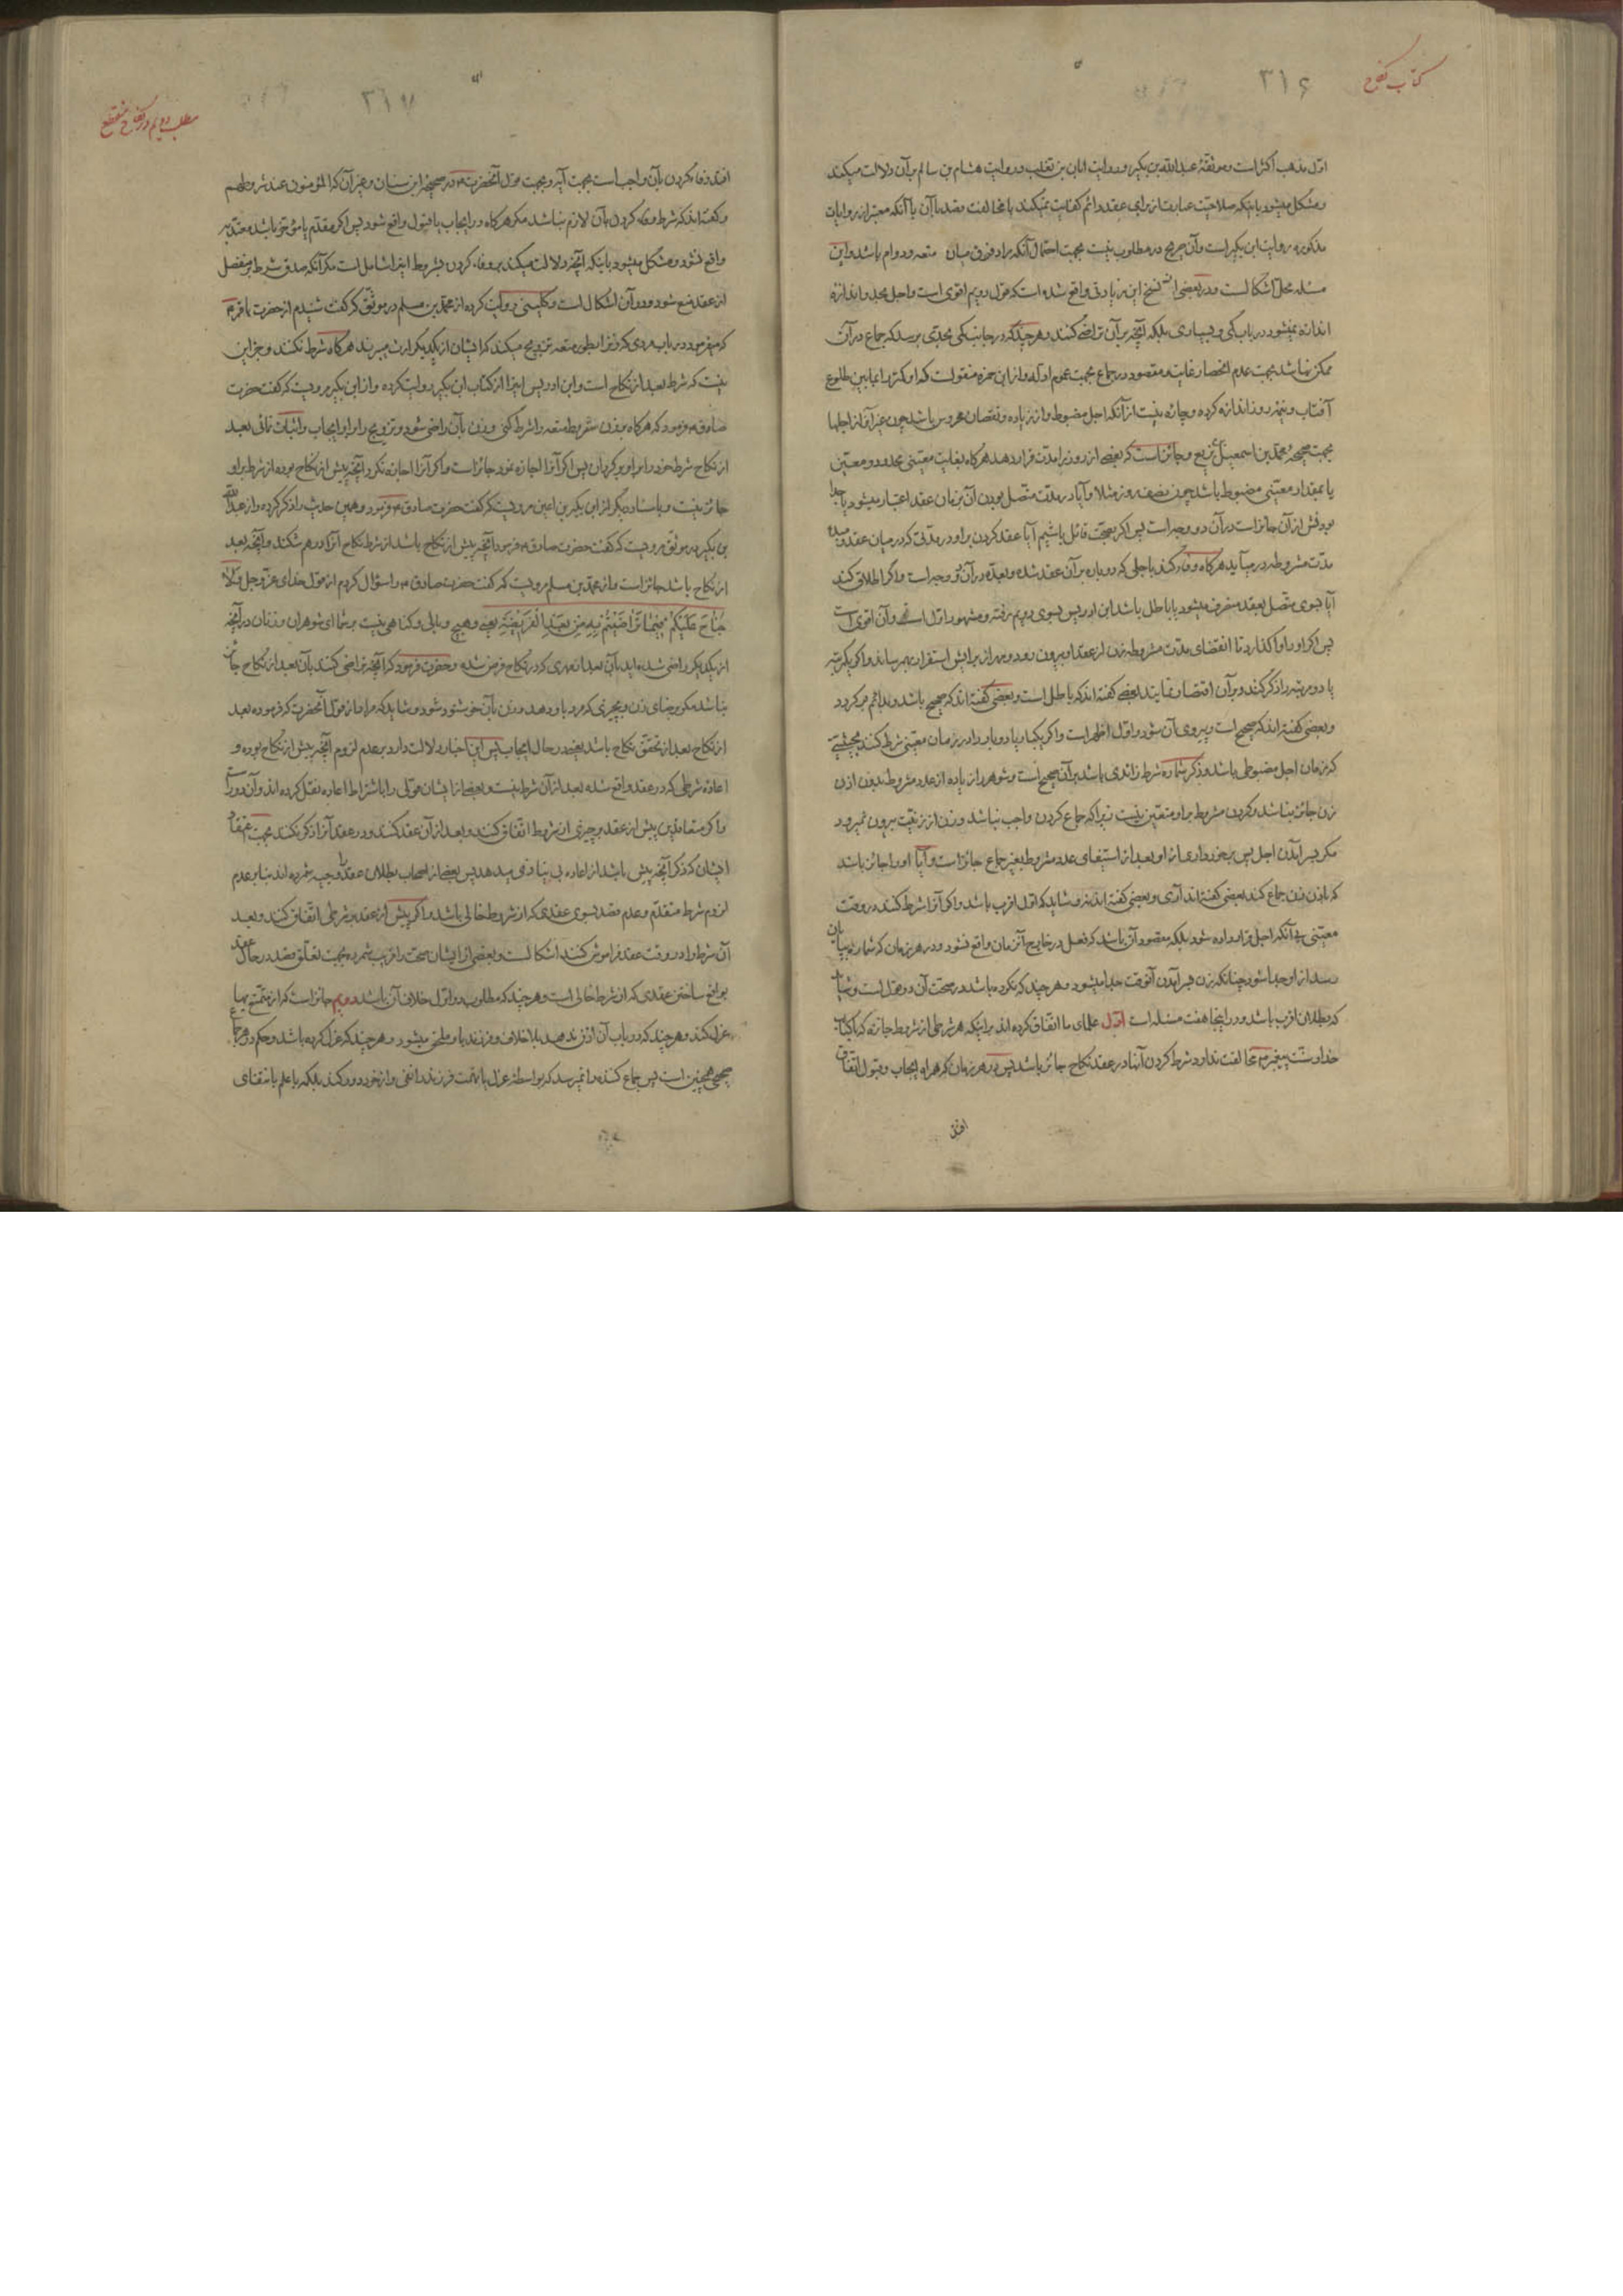 کتاب نکاح
۳۱۶
اوّل مذهب اکثر است و موثقهٔ عبدالله بن بکیر و روایت ابان بن تغلب و روایت هشام بن سالم بر آن دلالت میکند
و مشکل میشود باینکه صلاحیت عبارت از برای عقد دائم کفایت نمیکند با مخالفت قصد با آن با آنکه معتبر از روایات
مذکوره روایت ابن بکیر است و آن صریح در مطلوب نیست بجهت احتمال آنکه مراد فرق میان متعه و دوام باشد و این
مسئله محل اشکالست و در بعضی از نسخ این زیادتی واقع شده است که قول دویم اقوی است و اجل محد و اندازه
اندازه نمیشود در باب کمی و بسیاری بلکه آنچه بر آن تراضی کنند و هر چند که در جانب کمی بحدی برسد که جماع در آن
ممکن نباشد بجهت عدم انحصار غایت مقصود در جماع بجهت عموم ادله و از ابن حمزه منقولست که او کمتر را مابین طلوع
آفتاب و نیم روز اندازه کرده و چاره نیست از آنکه اجل مضبوط و از زیاده و نقصان محروس باشد چون غیر آن از اجلها
بجهت صحیحهٔ محمد بن اسمعیل بن بزیع و جائز است که بعضی از روز را مدت قرار دهد هرگاه بغایت معینی محدود و معین
یا بمقدار معینی مضبوط باشد چون نصف روز مثلا و آیا در مدت متصل بودن آن بزمان عقد اعتبار میشود یا جدا
بودنش از آن جائز است در آن دو وجه است پس اگر بصحت قائل باشیم آیا عقد کردن بر او در مدتی که در میان عقد و
مدت مشروطه در میآید هرگاه وفا کند باجلی که دوباره بر آن عقد شده و بعده در آن نیز دو وجه است و اگر اطلاق کند
آیا بسوی متصل بعقد منصرف میشود یا باطل باشد ابن ادریس بسوی دویم رفته و مشهور اول است و آن اقوی است
پس اگر او را واگذارد تا انقضای مدت مشروطه زن از عقد او بیرون رود و مهر از برایش استقرار بهم رساند و اگر یکمرتبه
یا دو مرتبه را ذکر کند و بر آن اقتصار نماید بعضی گفته اند که باطل است و بعضی گفته اند که صحیح باشد و بدائم برگردد
و بعضی گفته اند که صحیح است و پیروی آن شود و اول اظهر است و اگر یکبار یا دوبار را در زمان معینی شرط کند بحیثیتی
که زمان اجل مضبوطی باشد و ذکر شماره شرط زائدی باشد بر آن صحیح است و شوهر را زیاده از عدد مشروط بدون اذن
زن جائز نباشد و کردن مشروط بر او متعین نیست زیرا که جماع کردن واجب نباشد و زن از زنیت بیرون نمیرود
مگر بسر آمدن اجل پس برخورداری از او بعد از استیفای عدد مشروط بغیر جماع جائز است و آیا او را جائز باشد
که باذن زن جماع کند بعضی گفته اند آری و بعضی گفته اند نه و شاید که اول اقرب باشد و اگر آنرا شرط کند در وقت
معینی بی آنکه اجل قرار داده شود بلکه مقصود آن باشد که فعل در خارج آن زمان واقع نشود و در هر زمان که شماره بپایان
رسد از او جدا شود چنانکه زن بسر آمدن آنوقت جدا میشود و هر چند که نکرده باشد در صحت آن دو قول است و شاید
که بطلان اقرب باشد و در اینجا هفت مسئله است اوّل علمای ما اتفاق کرده اند بر اینکه هر شرطی از شروط جائزه که با کتاب
خدا و سنت پیغمبر ص مخالفت ندارد شرط کردن آنها در عقد نکاح جائز باشد پس در هر زمان که همراه ایجاب و قبول اتفاق
افتد
مطلب دویم در نکاح منقطع
۳۱۷
افتد وفا کردن بآن واجب است بجهت آیه و بجهت قول آنحضرت ع در صحیحهٔ ابن سنان و غیر آن که المؤمنون عند شروطهم
و گفته اند که شرط وفا کردن بآن لازم نباشد مگر هرگاه در ایجاب یا قبول واقع شود پس اگر مقدم یا مؤخر باشد معتد به
واقع نشود و مشکل میشود باینکه آنچه دلالت میکند بر وفا کردن بشروط اینرا شاملست مگر آنکه صدق شرط بر منفصل
از عقد منع شود و در آن اشکال است و کلینی روایت کرده از محمد بن مسلم در موثق که گفت شنیدم از حضرت باقر ع
که میفرمود در باب مردی که زنرا بطور متعه تزویج میکند که ایشان از یکدیگر ارث میبرند هرگاه شرط نکنند و جز این
نیست که شرط بعد از نکاح است و ابن ادریس اینرا از کتاب ابن بکیر روایت کرده و از ابن بکیر مرویست که گفت حضرت
صادق ع فرمود که هرگاه بر زن شروط متعه را شرط کنی و زن بآن راضی شود و تزویج را بر او ایجاب و اثبات نمائی بعد
از نکاح شرط خود را بر او برگردان پس اگر آنرا اجازه نمود جائز است و اگر آنرا اجازه نکرد آنچه پیش از نکاح بوده از شرط بر او
جائز نیست و باسناد دیگر از ابن بکیر بن اعین مرویست که گفت حضرت صادق ع فرمود و همین حدیث را ذکر کرده و از عبدالله
بن بکیر در موثق مرویست که گفت حضرت صادق ع فرمود آنچه پیش از نکاح باشد از شرط نکاح آنرا درهم شکند و آنچه بعد
از نکاح باشد جائز است و از محمد بن مسلم مرویست که گفت حضرت صادق ع را سؤال کردم از قول خدای عز و جل و لا
جُنَاحَ عَلَیْکُمْ فِیمَا تَرَاضَیْتُمْ بِهِ مِنْ بَعْدِ الْفَرِیضَةِ یعنی و هیچ وبالی و گناهی نیست بر شما ای شوهران و زنان در آنچه
از یکدیگر راضی شده اید بآن بعد از مهری که در نکاح فرض شده و حضرت فرمود که آنچه تراضی کنند بآن بعد از نکاح جائز
نباشد مگر برضای زن و بچیزی که مرد باو دهد و زن بآن خوشنود شود و شاید که مراد از قول آنحضرت که فرموده بعد
از نکاح بعد از تحقق نکاح باشد یعنی در حال ایجاب پس این اخبار دلالت دارد بر عدم لزوم آنچه پیش از نکاح بوده و
اعادهٔ شرطی که در عقد واقع شده بعد از آن شرط نیست و بعضی از ایشان قولی را باشتراط اعاده نقل کرده اند و آن دور است
و اگر متعاقدین پیش از عقد بر چیزی از شروط اتفاق کنند و بعد از آن عقد کنند و در عقد آنرا ذکر نکنند بجهت
ایشان که ذکر آنچه پیش باشد از اعاده بی نیازی میدهد پس بعضی از اصحاب بطلان عقد را وجیه شمرده اند بنا بر عدم
لزوم شرط متقدم و عدم قصد بسوی عقدی که از شروط خالی باشد و اگر پیش از عقد بر شرطی اتفاق کنند و بعد
آن شرط را در وقت عقد فراموش کنند اشکالست و بعضی از ایشان صحت را قریب شمرده بجهت تعلق قصد در حال عقد
بواقع ساختن عقدی که از شرط خالی است و هر چند که مطلوب در اول خلاف آن باشد دویم جائز است که از متمتع بها
عزل کند و هر چند که در باب آن اذن ندهد بلا خلاف و فرزند باو ملحق میشود و هر چند که عزل کرده باشد و حکم در هر جماع
صحیحی همچنین است پس جماع کننده را نمیرسد که بواسطهٔ عزل یا تهمت فرزند را نفی و از خود دور کند بلکه با علم بانتفای